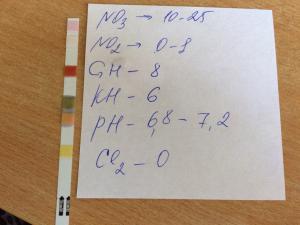 NO3 → 10-25
NO2 → 0-1
GH - 8
KH - 6
PH - 6,8 - 7,2
Cl2 - 0